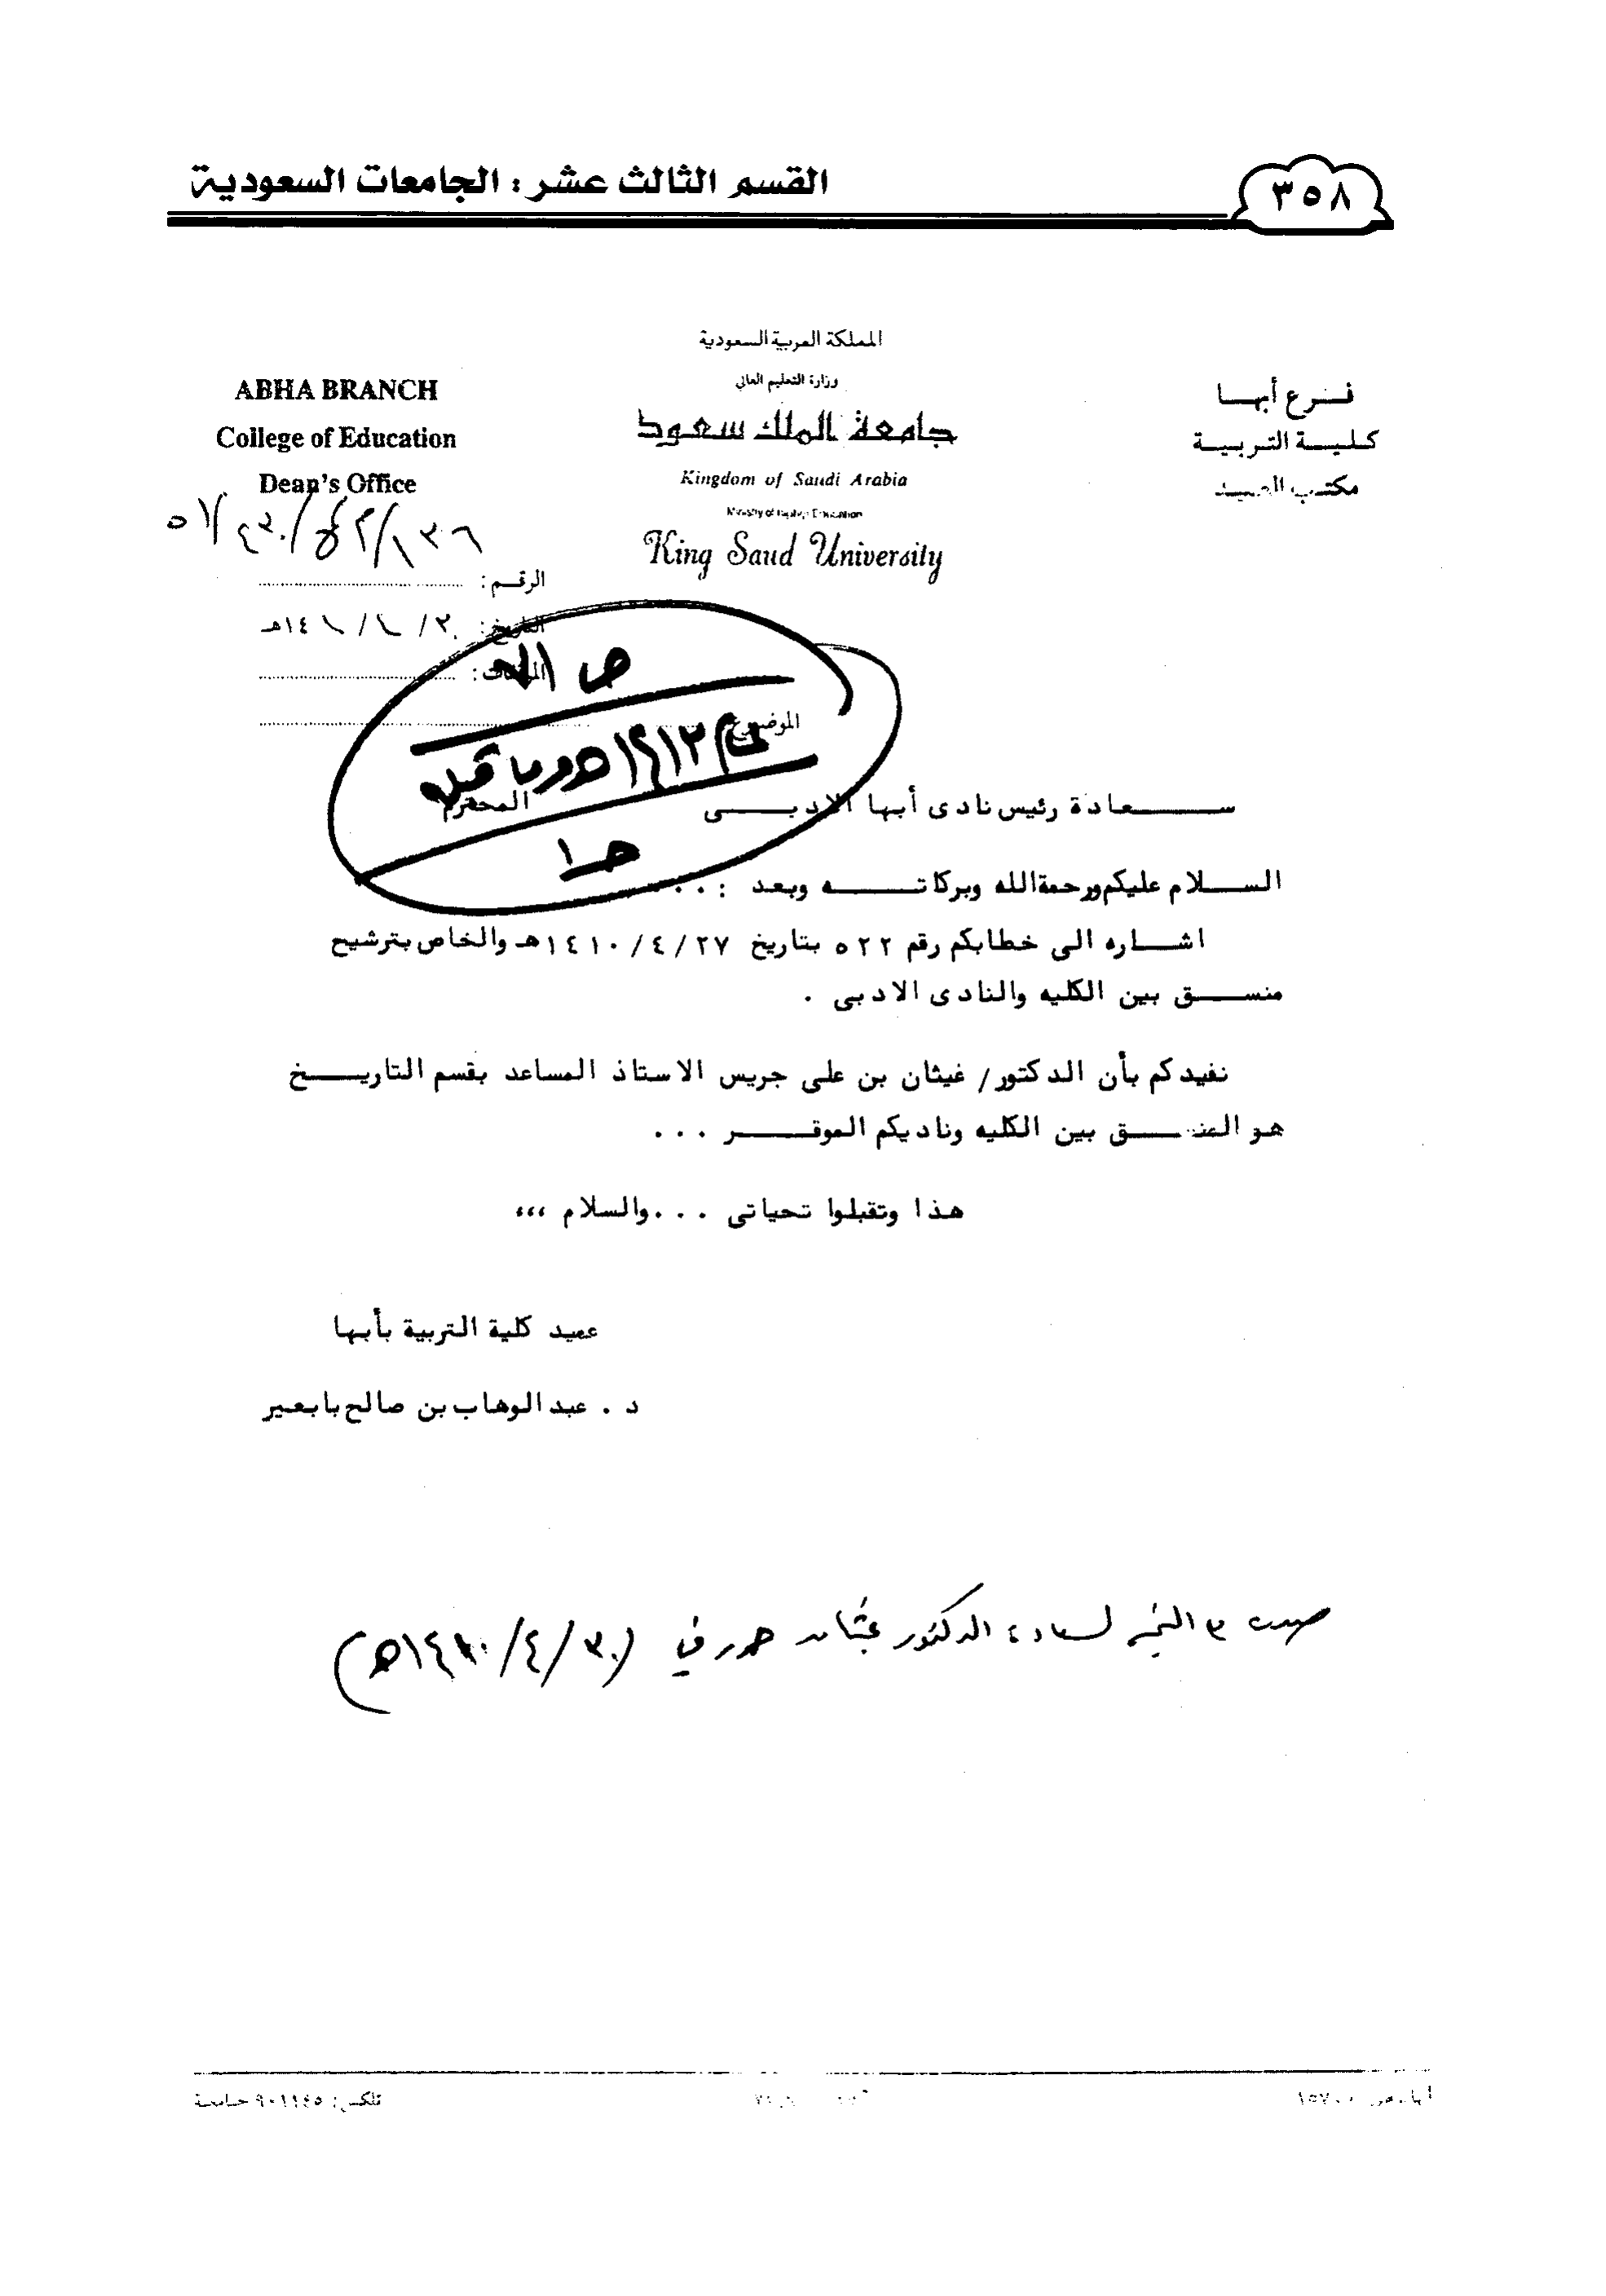 ٣٥٨
القسم الثالث عشر : الجامعات السعودية
المملكة العربية السعودية
وزارة التعليم العالي
جامعة الملك سعود
Kingdom of Saudi Arabia
Ministry of Higher Education
King Saud University
فرع أبها
كلية التربية
مكتب العميد
ABHA BRANCH
College of Education
Dean's Office
الرقم :
التاريخ :
الموضوع
عام ١٤١٣هـ وما قبله
سعادة رئيس نادى أبها الادبى المحترم
السلام عليكم ورحمة الله وبركاته وبعد : . . .
اشاره الى خطابكم رقم ٥٢٢ بتاريخ ١٤١٠/٤/٢٧هـ والخاص بترشيح
منسق بين الكليه والنادى الادبى .
نفيدكم بأن الدكتور/ غيثان بن على جريس الاستاذ المساعد بقسم التاريخ
هو المنسق بين الكليه وناديكم الموقر . . .
هذا وتقبلوا تحياتى . . . والسلام ،،،
عميد كلية التربية بأبها
د . عبدالوهاب بن صالح بابعير
لسعادة الدكتور غيثان
تلكس: ٩٠١١٤٥ جامعة